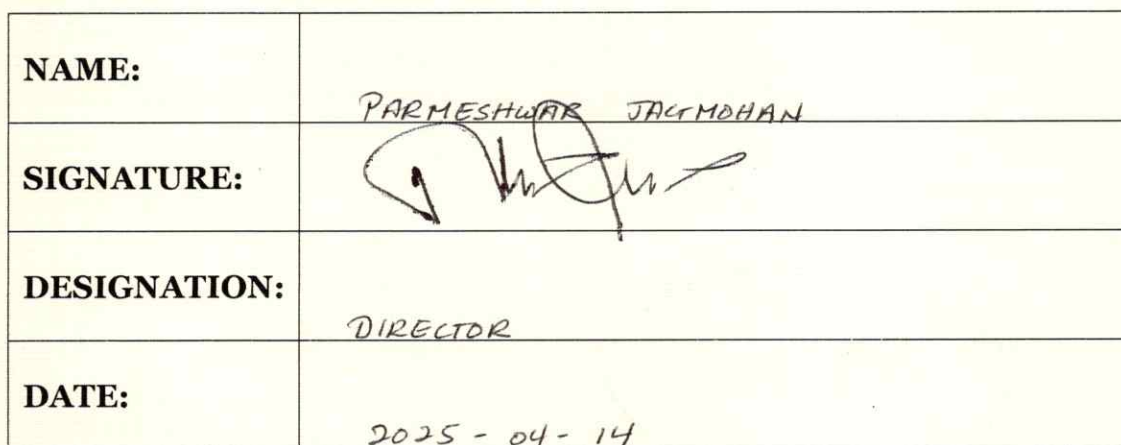 NAME: PARMESHWAR JAGMOHAN
SIGNATURE:
DESIGNATION: DIRECTOR
DATE: 2025-04-14